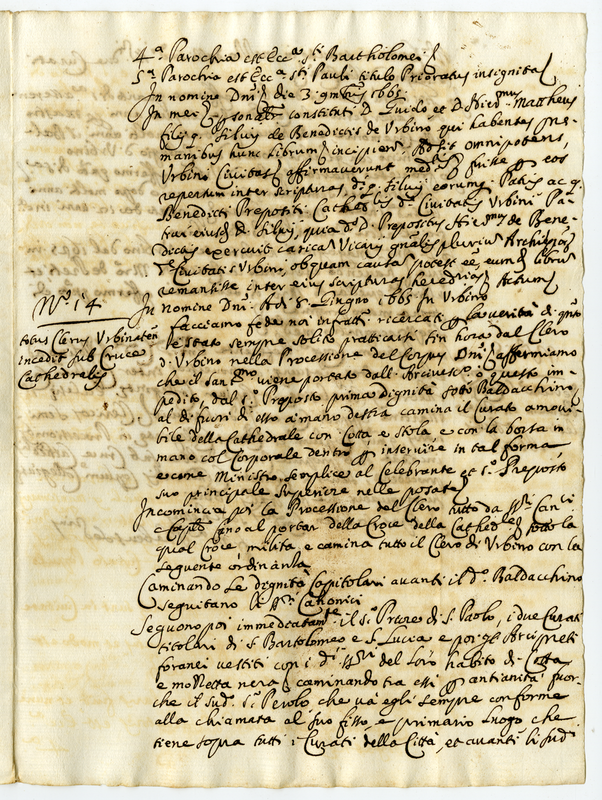 4.ª Parochia est Ecc.ª S.ti Bartholomei
5.ª Parochia est Ecc.ª S.ti Pauli titulo Prioratus insignita
In nomine Dni die 3 9mbris 1665
In mei person.r constituti D. Guido et D. Hier.mus Mattheus
filij q. Siluij de Benedictis de Urbino, qui habentes pre
manibus hunc librum incipien. Adsit omnipotens,
Urbino Civitas affirmaverunt med.o fuisse p eos
repertum inter scripturas d. q. Siluij eorum Patris ac q.
Benedicti Prepositi Cathed.lis d. Civitatis Urbini Pa-
trui eiusd. D. Siluij, quia d.s D. Prepositus Hier.mus de Bene-
dictis exercuit carica Vicarij gnalis plurium Archiepõr
Civitatis Urbini, ob quam causa potest ee, eumd. libru
remansisse inter eius scripturas hereditarias Actum
Nº 14
In nomine Dni. A di 8. Giugno 1665 In Urbino
totus Clerus Urbinaten
incedit sub Cruce
Cathedralis
facciamo fede noi infatti ricercati p la verità di qnto
è stato sempre solito pratticarsi fin hora dal Clero
d. Urbino nella Processione del Corpus Dni afferniamo
che il Sant.mo viene portato dall'Arcivesc.o ò questo im-
pedito, dal S.r Proposto prima dignità sotto Baldacchino,
al di fuori di esso a mano destra camina il Curato amoui-
bile della Cathedrale con Cotta e Stola e con la borsa in
mano col Corporale dentro p inservire in tal forma
e come Ministro semplice al Celebrante et S.r Preposto
suo principale Superiore nelle posate
Incomincia poi la Processione del Clero tutto da SS.ri Can.ci
fino al portar della Croce della Cathed.le sotto la
qual Croce, milita e camina tutto il Clero di Urbino con la
seguente ordinanza
Caminando le dignità Capitolari auanti il d.o Baldacchino
seguitano li SS.ri Canonici
Seguono poi immediatam.te il S.r Priore di S. Paolo, i due Curati
titolari di S. Bartolomeo e S. Lucia e poi gli Arcipreti
foranei vestiti con i d.i SS.ri del loro habito di Cotta
e mozzetta nera caminando tra essi p antianità fuor-
che il sud.o S.r Perolo che va egli sempre conforme
alla chiamata al suo fisso, e primario luogo che
tiene sopra tutti i Curati della Città, et auanti li sud.i